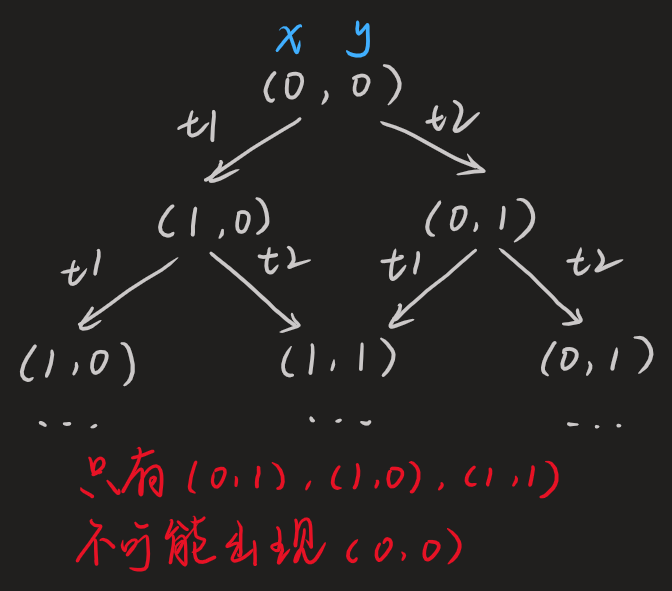 x y
(0, 0)
t1 t2
(1, 0) (0, 1)
t1 t2 t1 t2
(1, 0) (1, 1) (0, 1)
... ... ...
只有 (0,1), (1,0), (1,1)
不可能出现 (0,0)